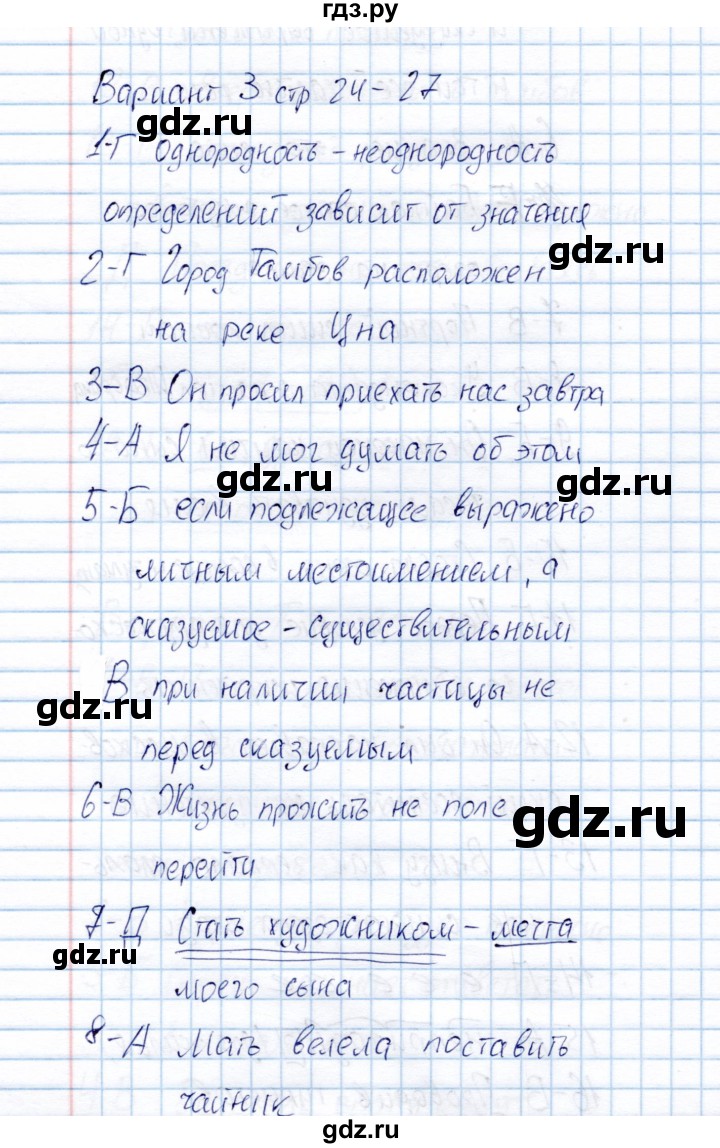 гдз.ру
Вариант 3 стр 24-27
gdz.ru
1-Г Однородность - неоднородность
определений зависит от значения
gdz.ru
2-Г Город Тамбов расположен
на реке Цна
gdz.ru
3-В Он просил приехать нас завтра
4-А Я не мог думать об этом
gdz.ru
gdz.ru
5-Б если подлежащее выражено
личным местоимением, а
сказуемое - существительным
В при наличии частицы не
gdz.ru
перед сказуемым
6-В Жизнь прожить не поле
gdz.ru
перейти
7-Д Стать художником - мечта
gdz.ru
моего сына
8-А Мать велела поставить
gdz.ru
чайник